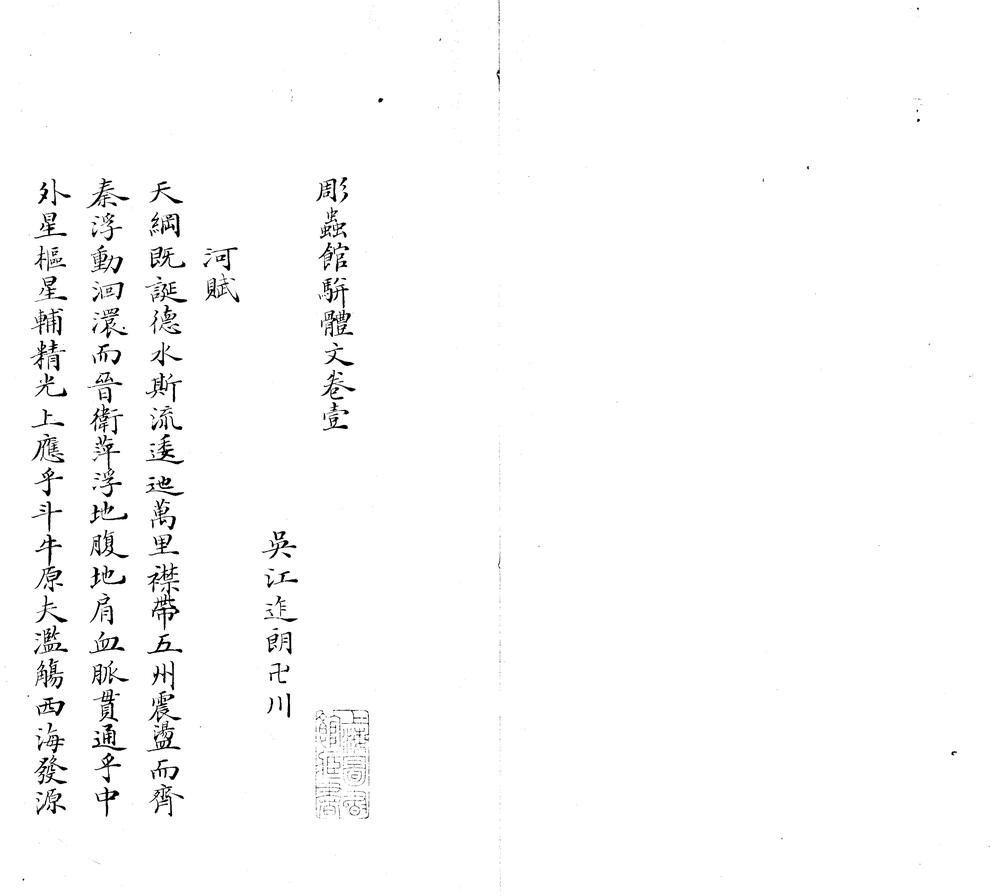 彫蟲館駢體文卷壹
吳江迮朗卍川
河賦
天綱既誕德水斯流逶迆萬里襟帶五州震盪而齊
秦浮動洄澴而晉衛萍浮地腹地肩血脈貫通乎中
外星樞星輔精光上應乎斗牛原夫濫觴西海發源
上海圖書館藏書